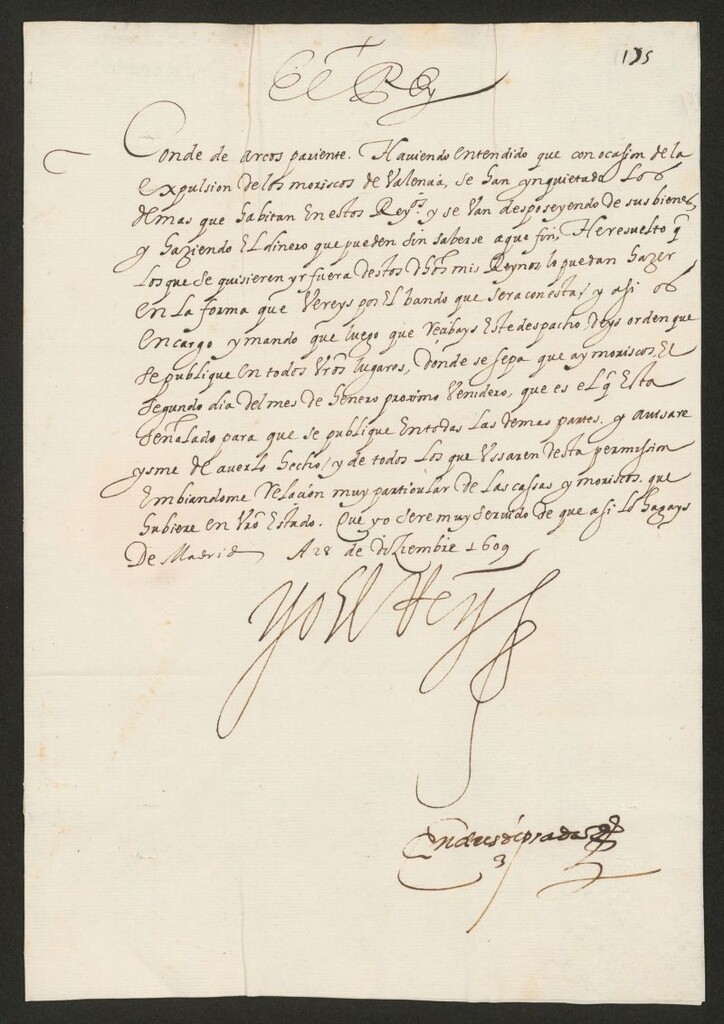 135
El Rey
Conde de arcos pariente. Haviendo entendido que con ocasion de la
expulsion de los moriscos de Valencia, se han ynquietado los
demas que habitan en estos Reyos. y se van desposeyendo de sus bienes,
y haziendo el dinero que pueden sin saberse a que fin, He resuelto q
los que se quisieren yr fuera destos dhos mis Reynos lo puedan hazer
en la forma que vereys por el bando que sera con esta/ y asi os
encargo y mando que luego que recibays este despacho deys orden que
se publique en todos vros lugares, donde se sepa que ay moriscos, el
segundo dia del mes de henero proximo venidero, que es el q esta
señalado para que se publique en todas las demas partes. y avisare
ysme de averlo hecho/ y de todos los que ussaren desta permission
embiandome relacion muy particular de las cassas y moriscos que
hubiere en vro estado. Que yo sere muy servido de que asi lo hagays
De Madrid A 28 de diziembre 1609
Yo El Rey
Andres de prada